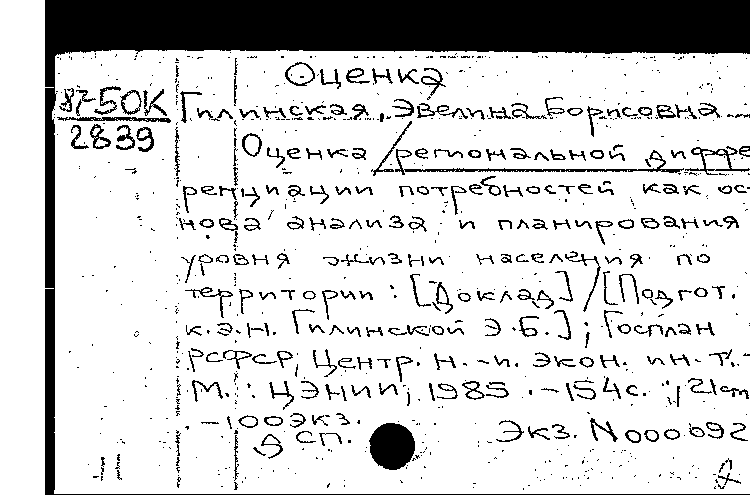 Оценка
87-50К Гилинская, Эвелина Борисовна
2839
Оценка региональной диффе
ренциации потребностей как ос
нова анализа и планирования
уровня жизни населения по
территории : [Доклад] / [Подгот.
к.э.н. Гилинской Э.Б.]; Госплан
РСФСР, Центр. н.-и. экон. ин-т.-
М. : ЦЭНИИ, 1985 .-154с. ; 21см
.-100экз.
ДСП. Экз. N000692